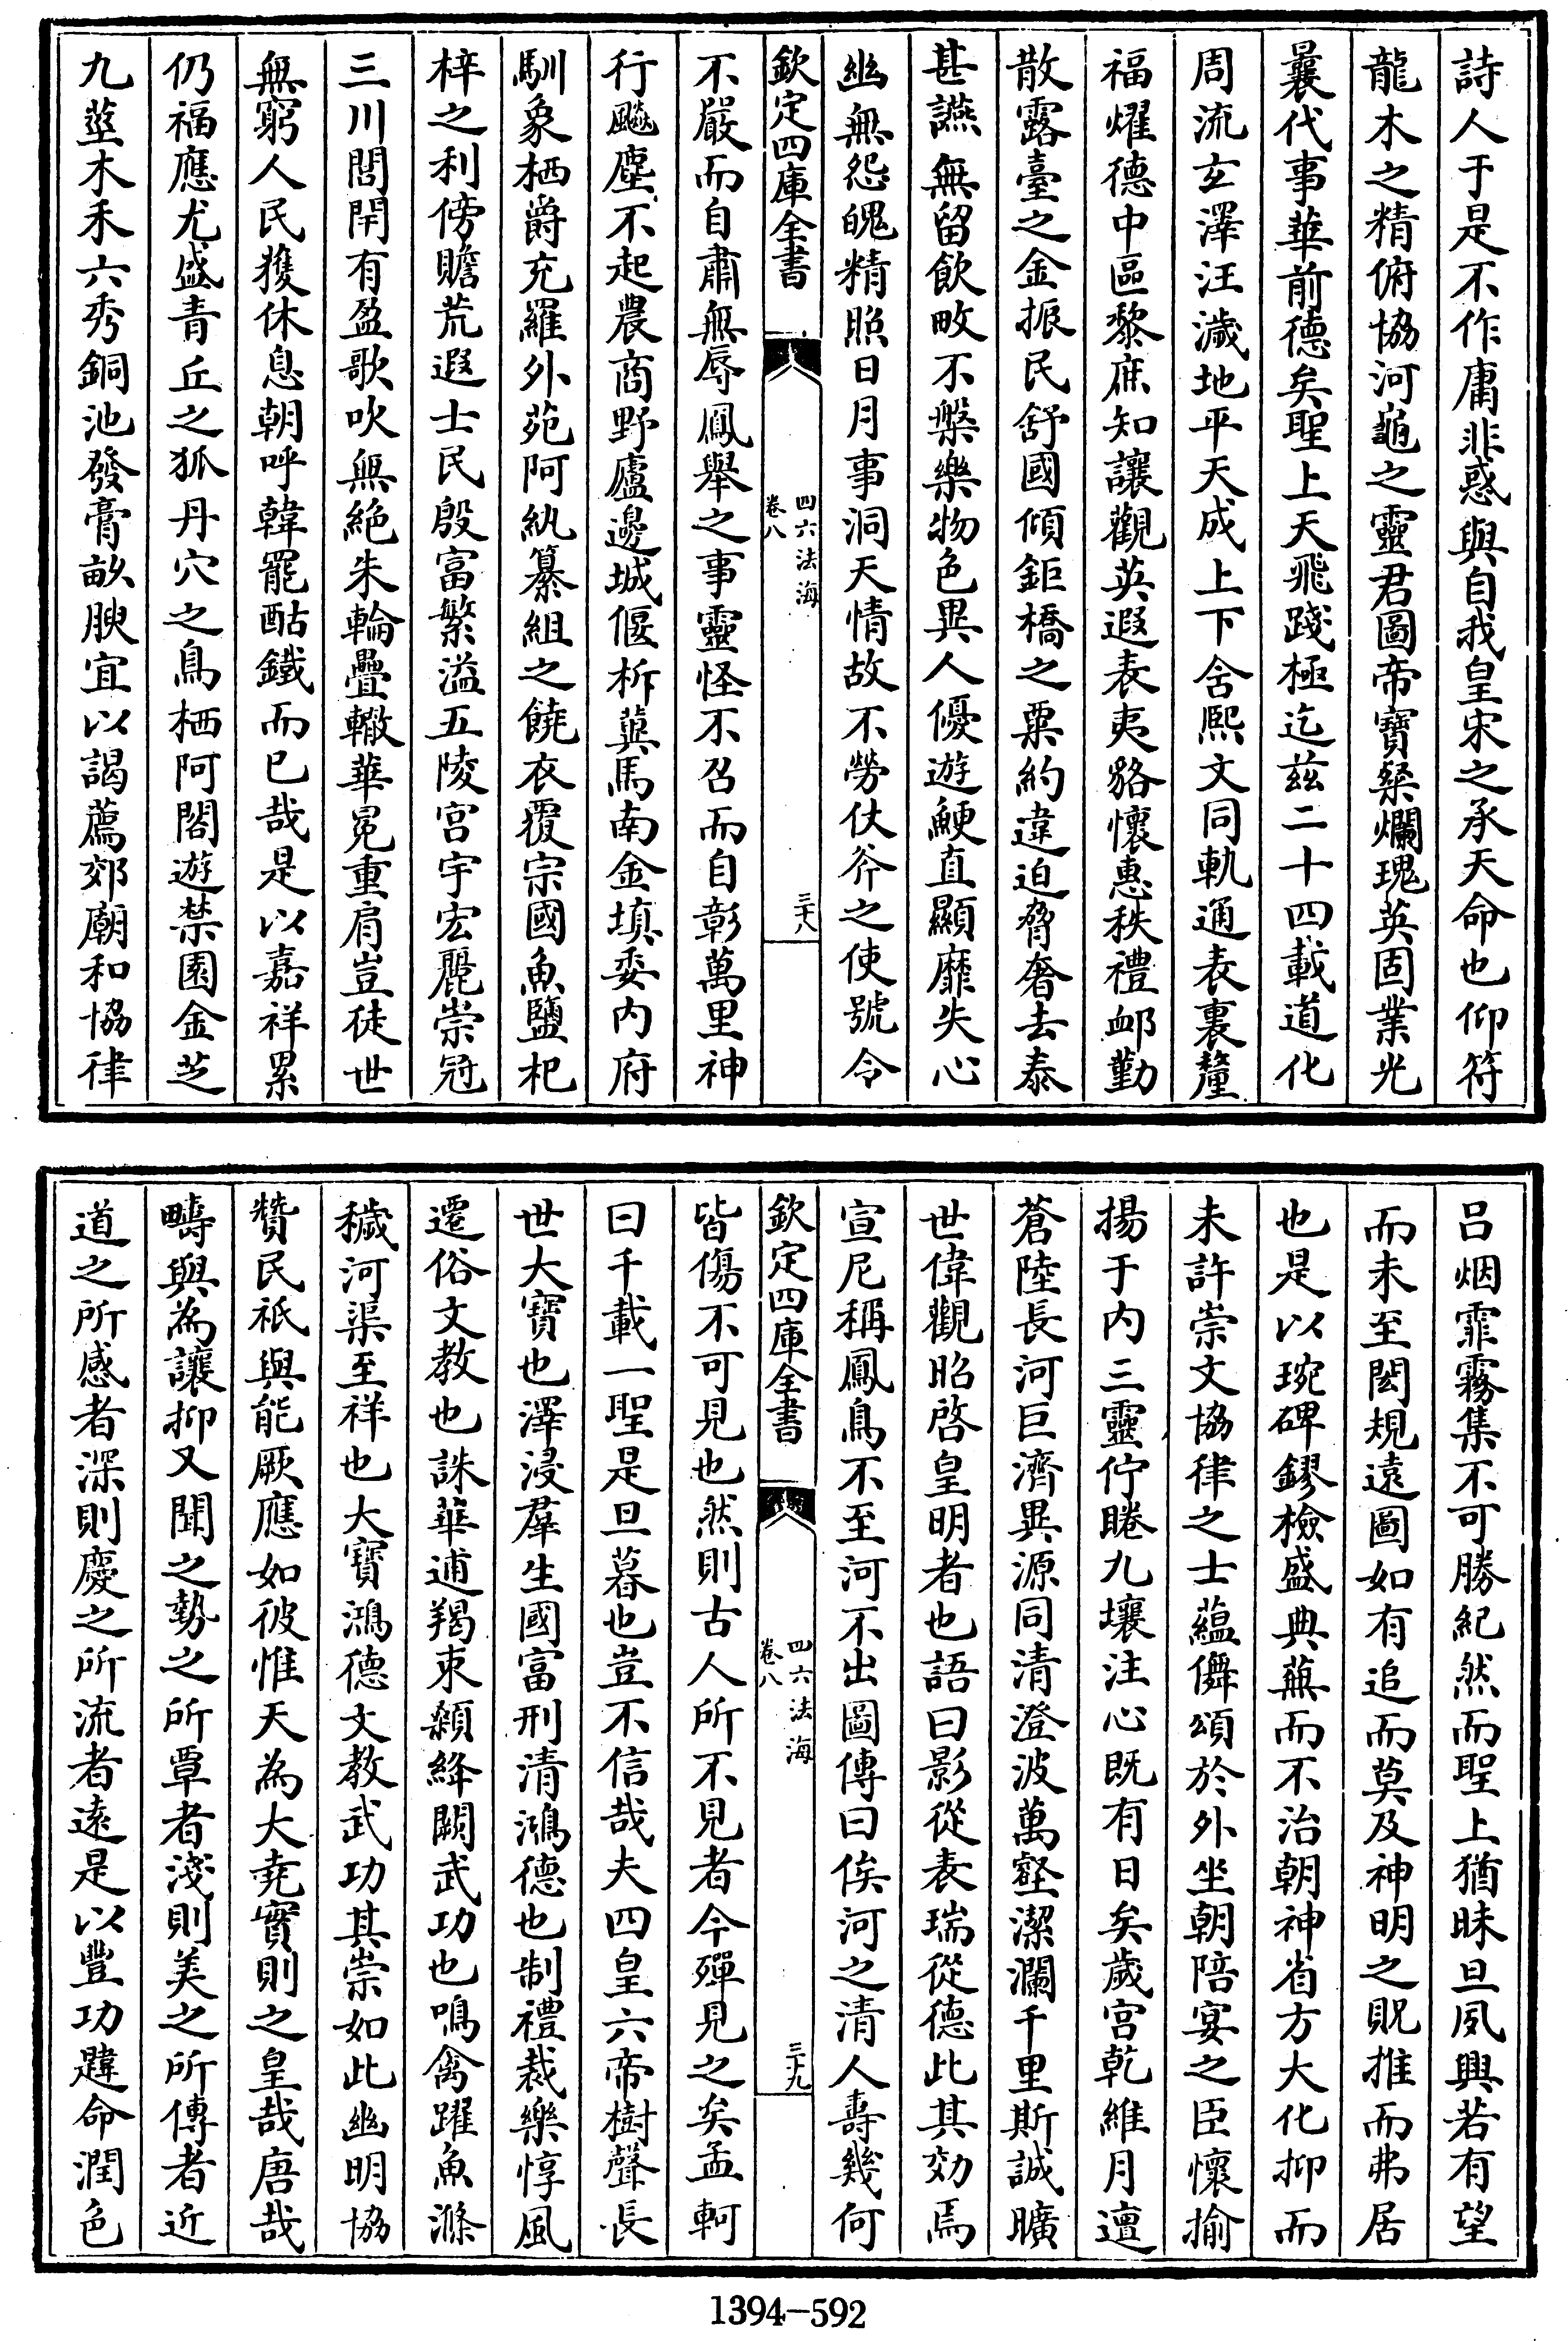 詩人于是不作庸非惑與自我皇宋之承天命也仰符
龍木之精俯協河龜之靈君圖帝寶粲爛瑰英固業光
曩代事華前德矣聖上天飛踐極迄茲二十四載道化
周流玄澤汪濊地平天成上下含熙文同軌通表裏釐
福燿德中區黎庶知讓觀英遐表夷貉懷惠秩禮卹勤
散露臺之金振民舒國傾鉅橋之粟約違迫脅奢去泰
甚讌無留飲畋不槃樂物色異人優遊鯁直顯靡失心
幽無怨魄精照日月事洞天情故不勞仗斧之使號令
欽定四庫全書
四六法海
卷八
三十八
不嚴而自肅無辱鳳舉之事靈怪不召而自彰萬里神
行飈塵不起農商野廬邊城偃柝冀馬南金填委內府
馴象栖爵充羅外苑阿紈纂組之饒衣覆宗國魚鹽杞
梓之利傍贍荒遐士民殷富繁溢五陵宮宇宏麗崇冠
三川閭閈有盈歌吹無絶朱輪疊轍華冕重肩豈徒世
無窮人民獲休息朝呼韓罷酤鐵而已哉是以嘉祥累
仍福應尤盛青丘之狐丹穴之鳥栖阿閣遊禁園金芝
九莖木禾六秀銅池發膏畝腴宜以謁薦郊廟和協律
呂烟霏霧集不可勝紀然而聖上猶昧旦夙興若有望
而未至閎規遠圖如有追而莫及神明之貺推而弗居
也是以琬碑鏐檢盛典蕪而不治朝神省方大化抑而
未許崇文協律之士蘊儛頌於外坐朝陪宴之臣懷揄
揚于內三靈佇睠九壤注心既有日矣歲宮乾維月邅
蒼陸長河巨濟異源同清澄波萬壑潔瀾千里斯誠曠
世偉觀昭啓皇明者也語曰影從表瑞從德此其効焉
宣尼稱鳳鳥不至河不出圖傳曰俟河之清人壽幾何
欽定四庫全書
四六法海
卷八
三十九
皆傷不可見也然則古人所不見者今殫見之矣孟軻
曰千載一聖是旦暮也豈不信哉夫四皇六帝樹聲長
世大寶也澤浸羣生國富刑清鴻德也制禮裁樂惇風
遷俗文教也誅華逋羯束顙絳闕武功也鳴禽躍魚滌
穢河渠至祥也大寶鴻德文教武功其崇如此幽明協
贊民祇與能厥應如彼惟天為大堯實則之皇哉唐哉
疇與為讓抑又聞之勢之所覃者淺則美之所傳者近
道之所感者深則慶之所流者遠是以豐功韙命潤色
1394-592